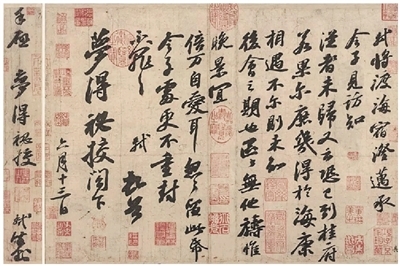 軾將渡海宿澄邁承
令子見訪知
從者未歸又云恐已到桂府
若果爾庶幾得於海康
相遇不爾則未知
後會之期也區々無他禱惟
晚景宜
倍万自愛耳忽々留此帋
令子處更不重封
不罪々々 軾頓首
夢得秘校閣下
六月十三日
手啟 夢得秘校 軾封